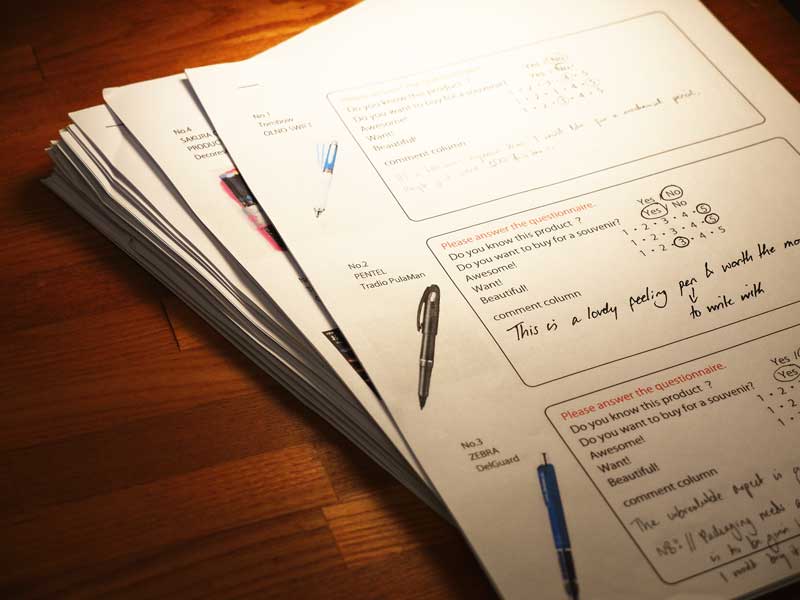 No.4
SAKURA
PRODU
Decores
No.1
Tombow
OLNO SWIFT
Please answer the questionnaire.
Do you know this product ? Yes No
Do you want to buy for a souvenir? Yes No
Awesome! 1・2・3・4・5
Want! 1・2・3・4・5
Beautiful! 1・2・3・4・5
comment column
No.2
PENTEL
Tradio PulaMan
Please answer the questionnaire.
Do you know this product ? Yes No
Do you want to buy for a souvenir? Yes No
Awesome! 1・2・3・4・5
Want! 1・2・3・4・5
Beautiful! 1・2・3・4・5
comment column
This is a lovely feeling pen & worth the mo
to write with
No.3
ZEBRA
DelGuard
Please answer the questionnaire.
Do you know this product ? Yes
Do you want to buy for a souvenir? Yes
Awesome! 1・2・
Want! 1・2・
Beautiful! 1・
comment column
The unbreakable aspect is
NB: // Packaging needs
is to be given
I must buy it